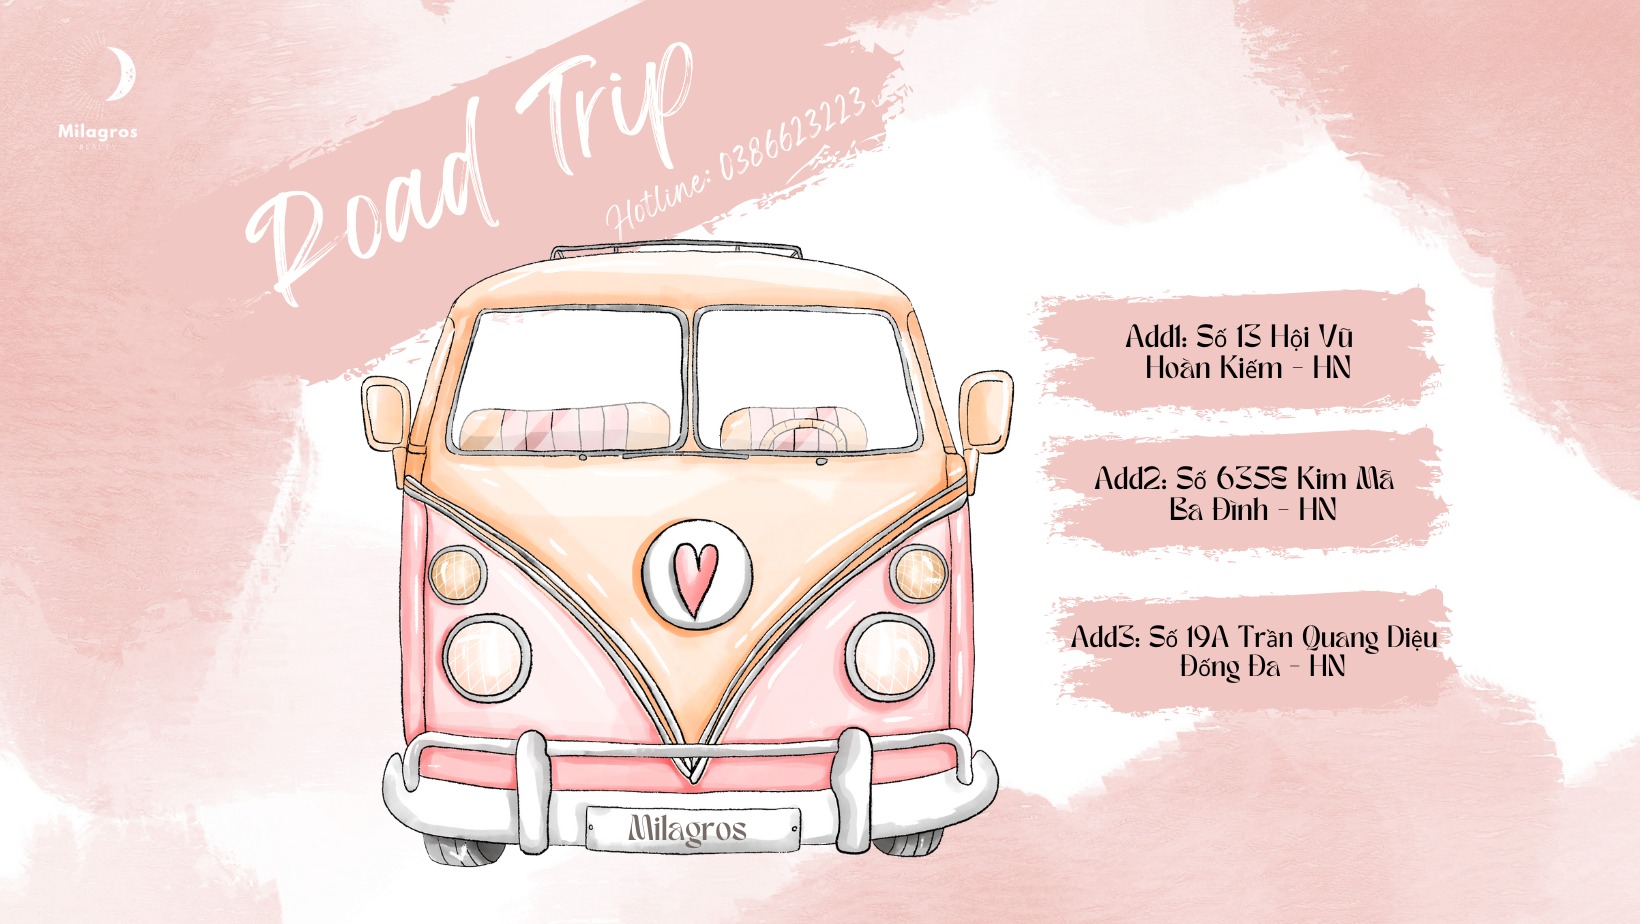 Milagros
BEAUTY
Road Trip
Hotline: 0386623223
Add1: Số 13 Hội Vũ
Hoàn Kiếm - HN
Add2: Số 635E Kim Mã
Ba Đình - HN
Add3: Số 19A Trần Quang Diệu
Đống Đa - HN
Milagros